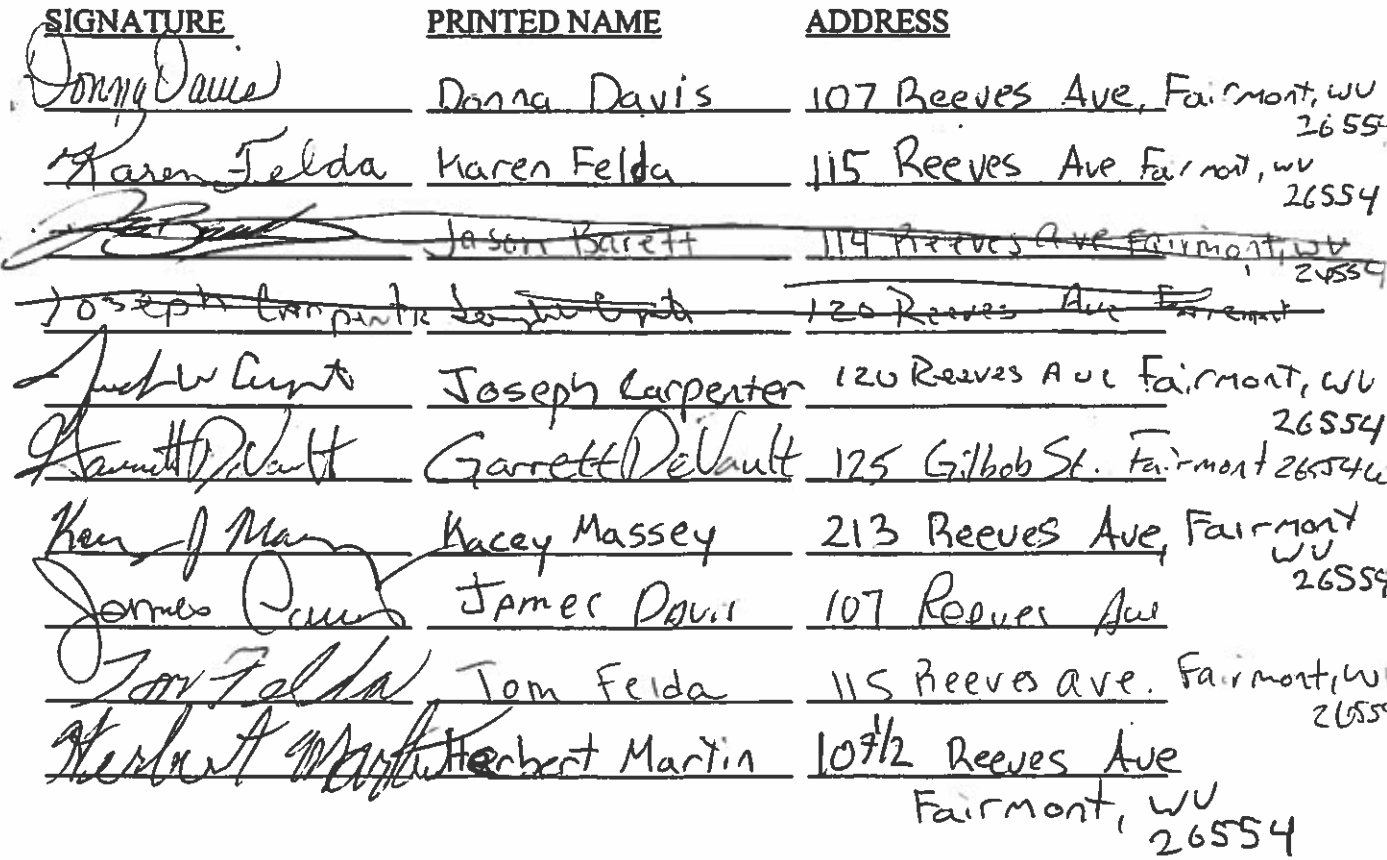 SIGNATURE PRINTED NAME ADDRESS
Donna Davis Donna Davis 107 Reeves Ave, Fairmont, WV
26554
Karen Felda Karen Felda 115 Reeves Ave Fairmont, WV
26554
Jason Barett 114 Reeves Ave Fairmont, WV
26554
Joseph Carpenter 120 Reeves Ave Fairemont
Joseph Carpenter 120 Reeves Ave Fairmont, WV
26554
Garrett DeVault Garrett DeVault 125 Gilbob St. Fairmont 26554
Kacey Massey 213 Reeves Ave, Fairmont
WV
26554
James Davis James Davis 107 Reeves Ave
Tom Felda Tom Felda 115 Reeves ave. Fairmont, W
2655
Herbert Martin Herbert Martin 107 1/2 Reeves Ave
Fairmont, WV
26554